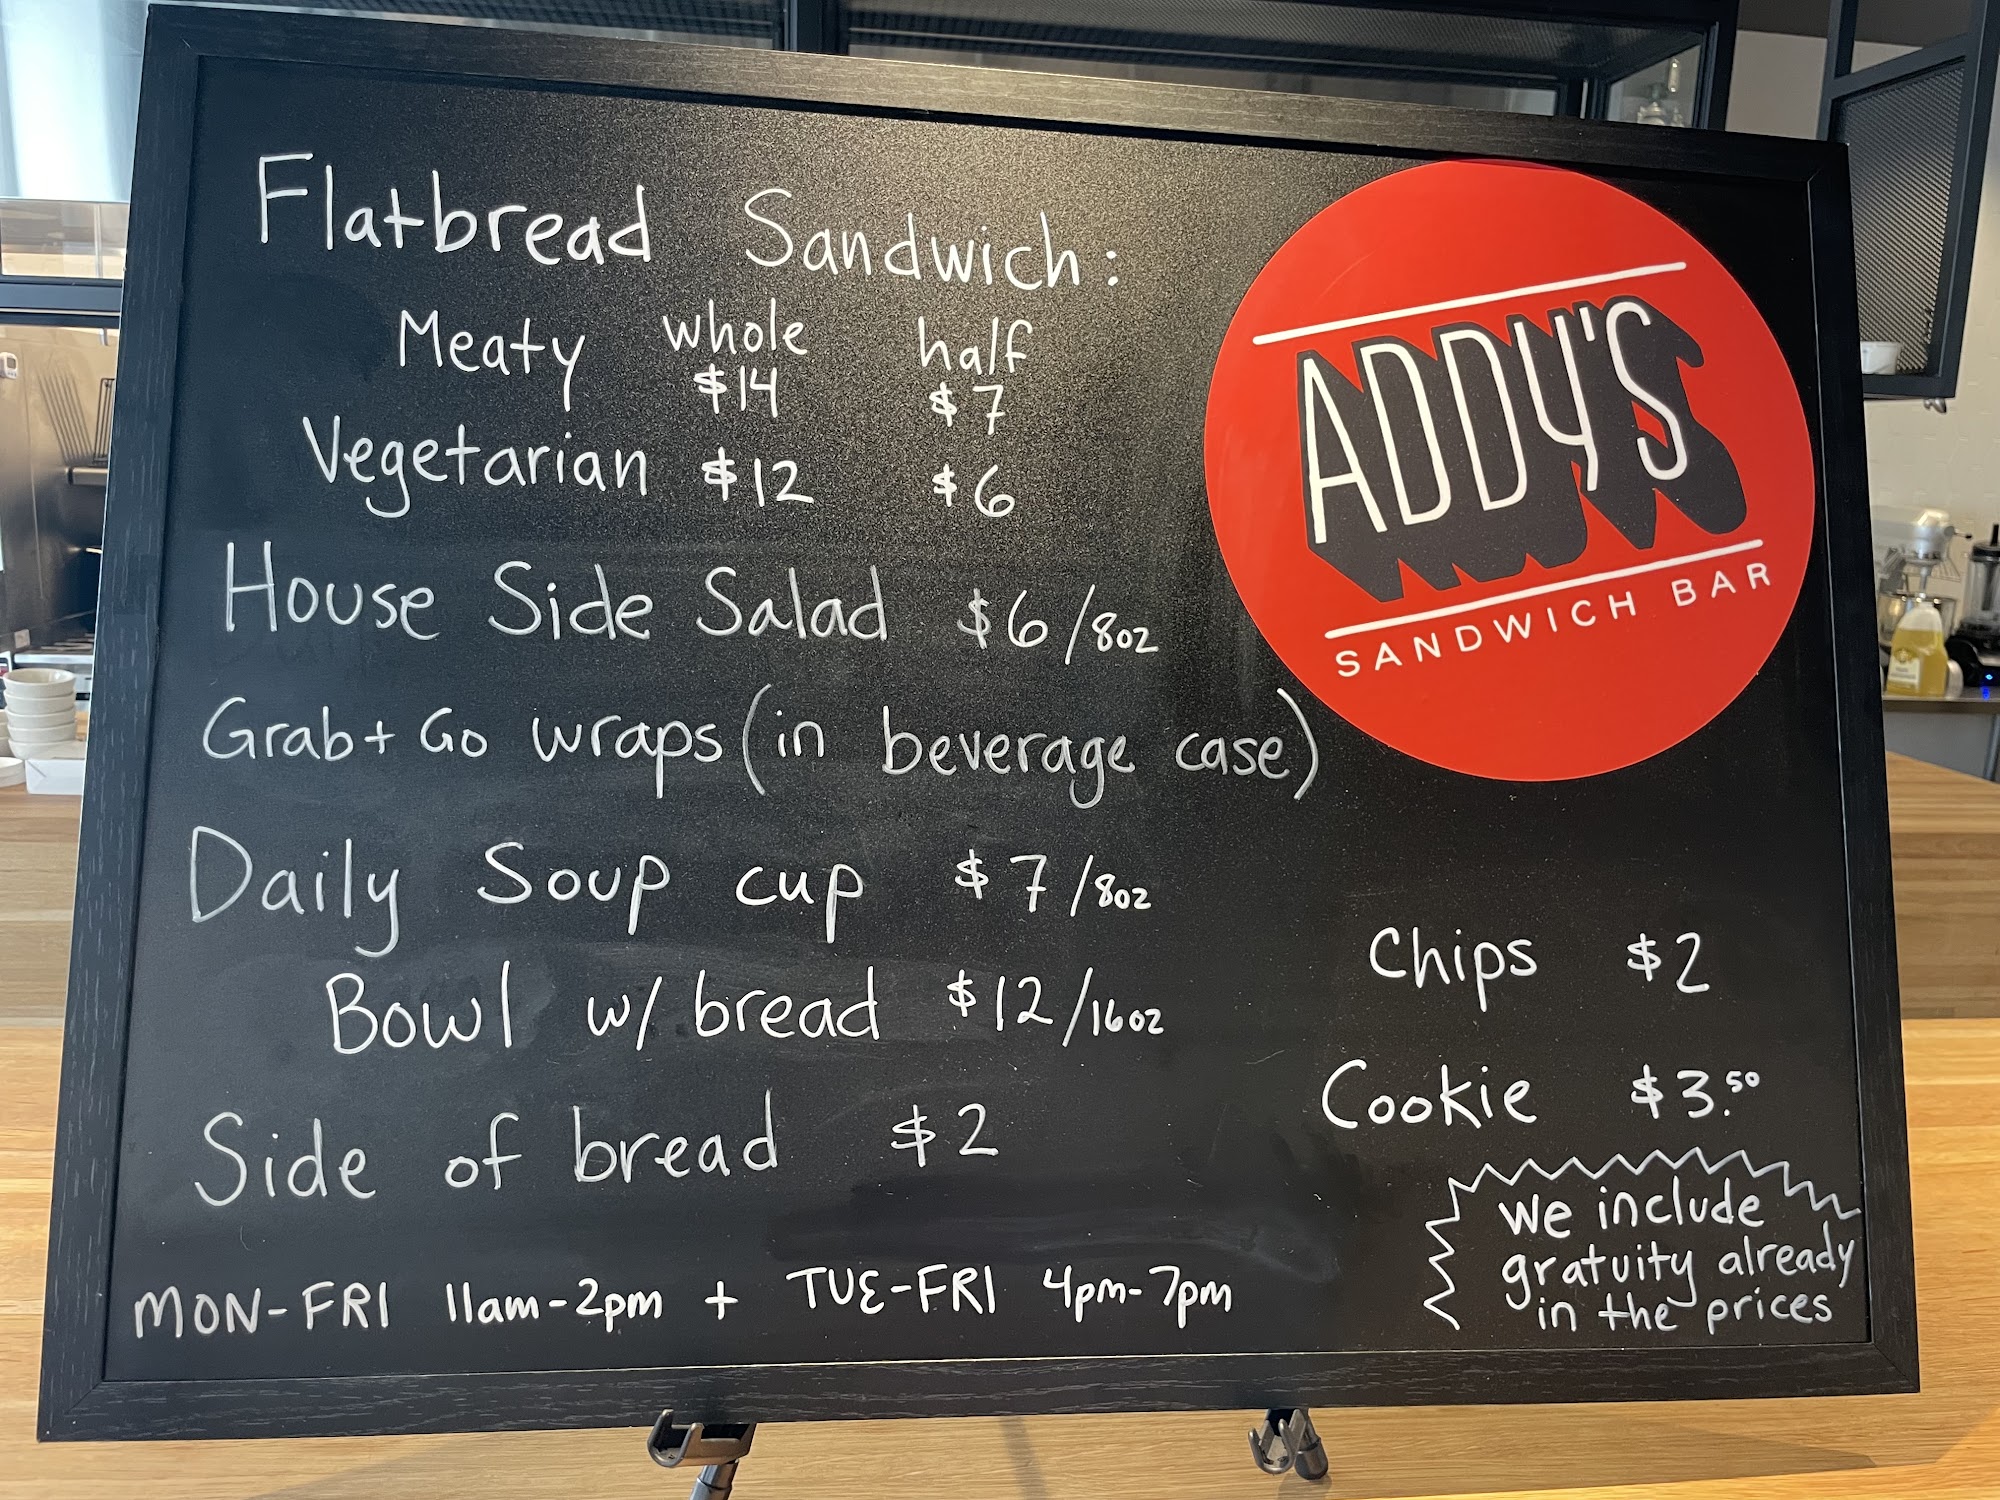 Flatbread Sandwich:
Meaty whole half
$14 $7
Vegetarian $12 $6
House Side Salad $6/8oz
Grab + Go wraps (in beverage case)
Daily Soup cup $7/8oz
Bowl w/ bread $12/16oz
Side of bread $2
MON-FRI 11am-2pm + TUE-FRI 4pm-7pm
ADDY'S
SANDWICH BAR
Chips $2
Cookie $3.50
We include
gratuity already
in the prices